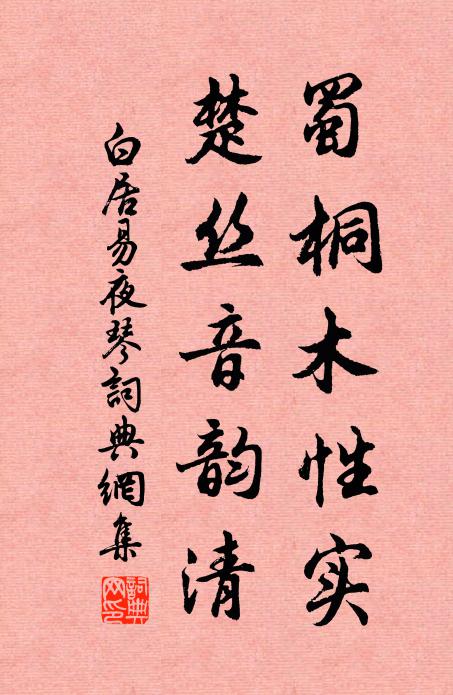 蜀桐木性实
楚丝音韵清
白居易夜琴詞典網集
詞典网印